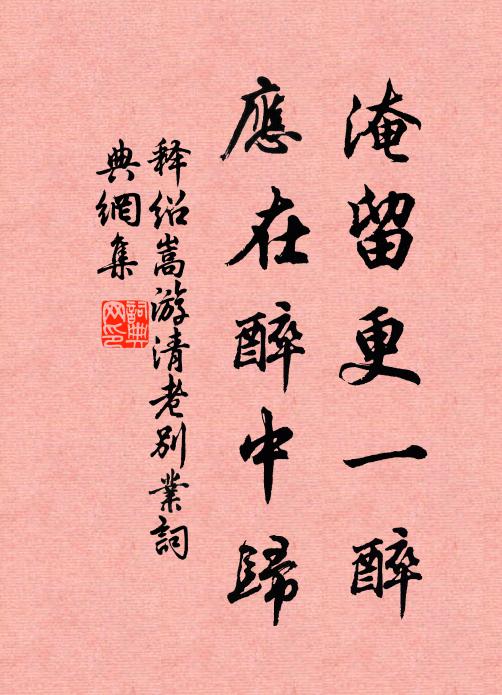 淹留更一醉
應在醉中歸
释绍嵩游清老別業詞
典網集
詞典网印